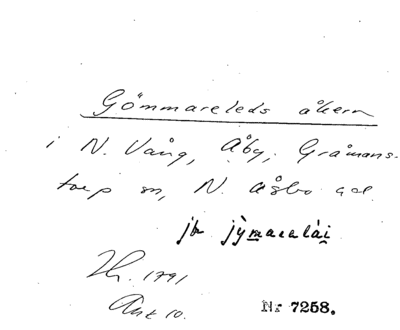 Gömmareleds åkern
i N. Vång, Åby, Gråmans-
torp sn, N. Åsbo hd.
jymaralài
1791
Ant 10.
Nr 7258.